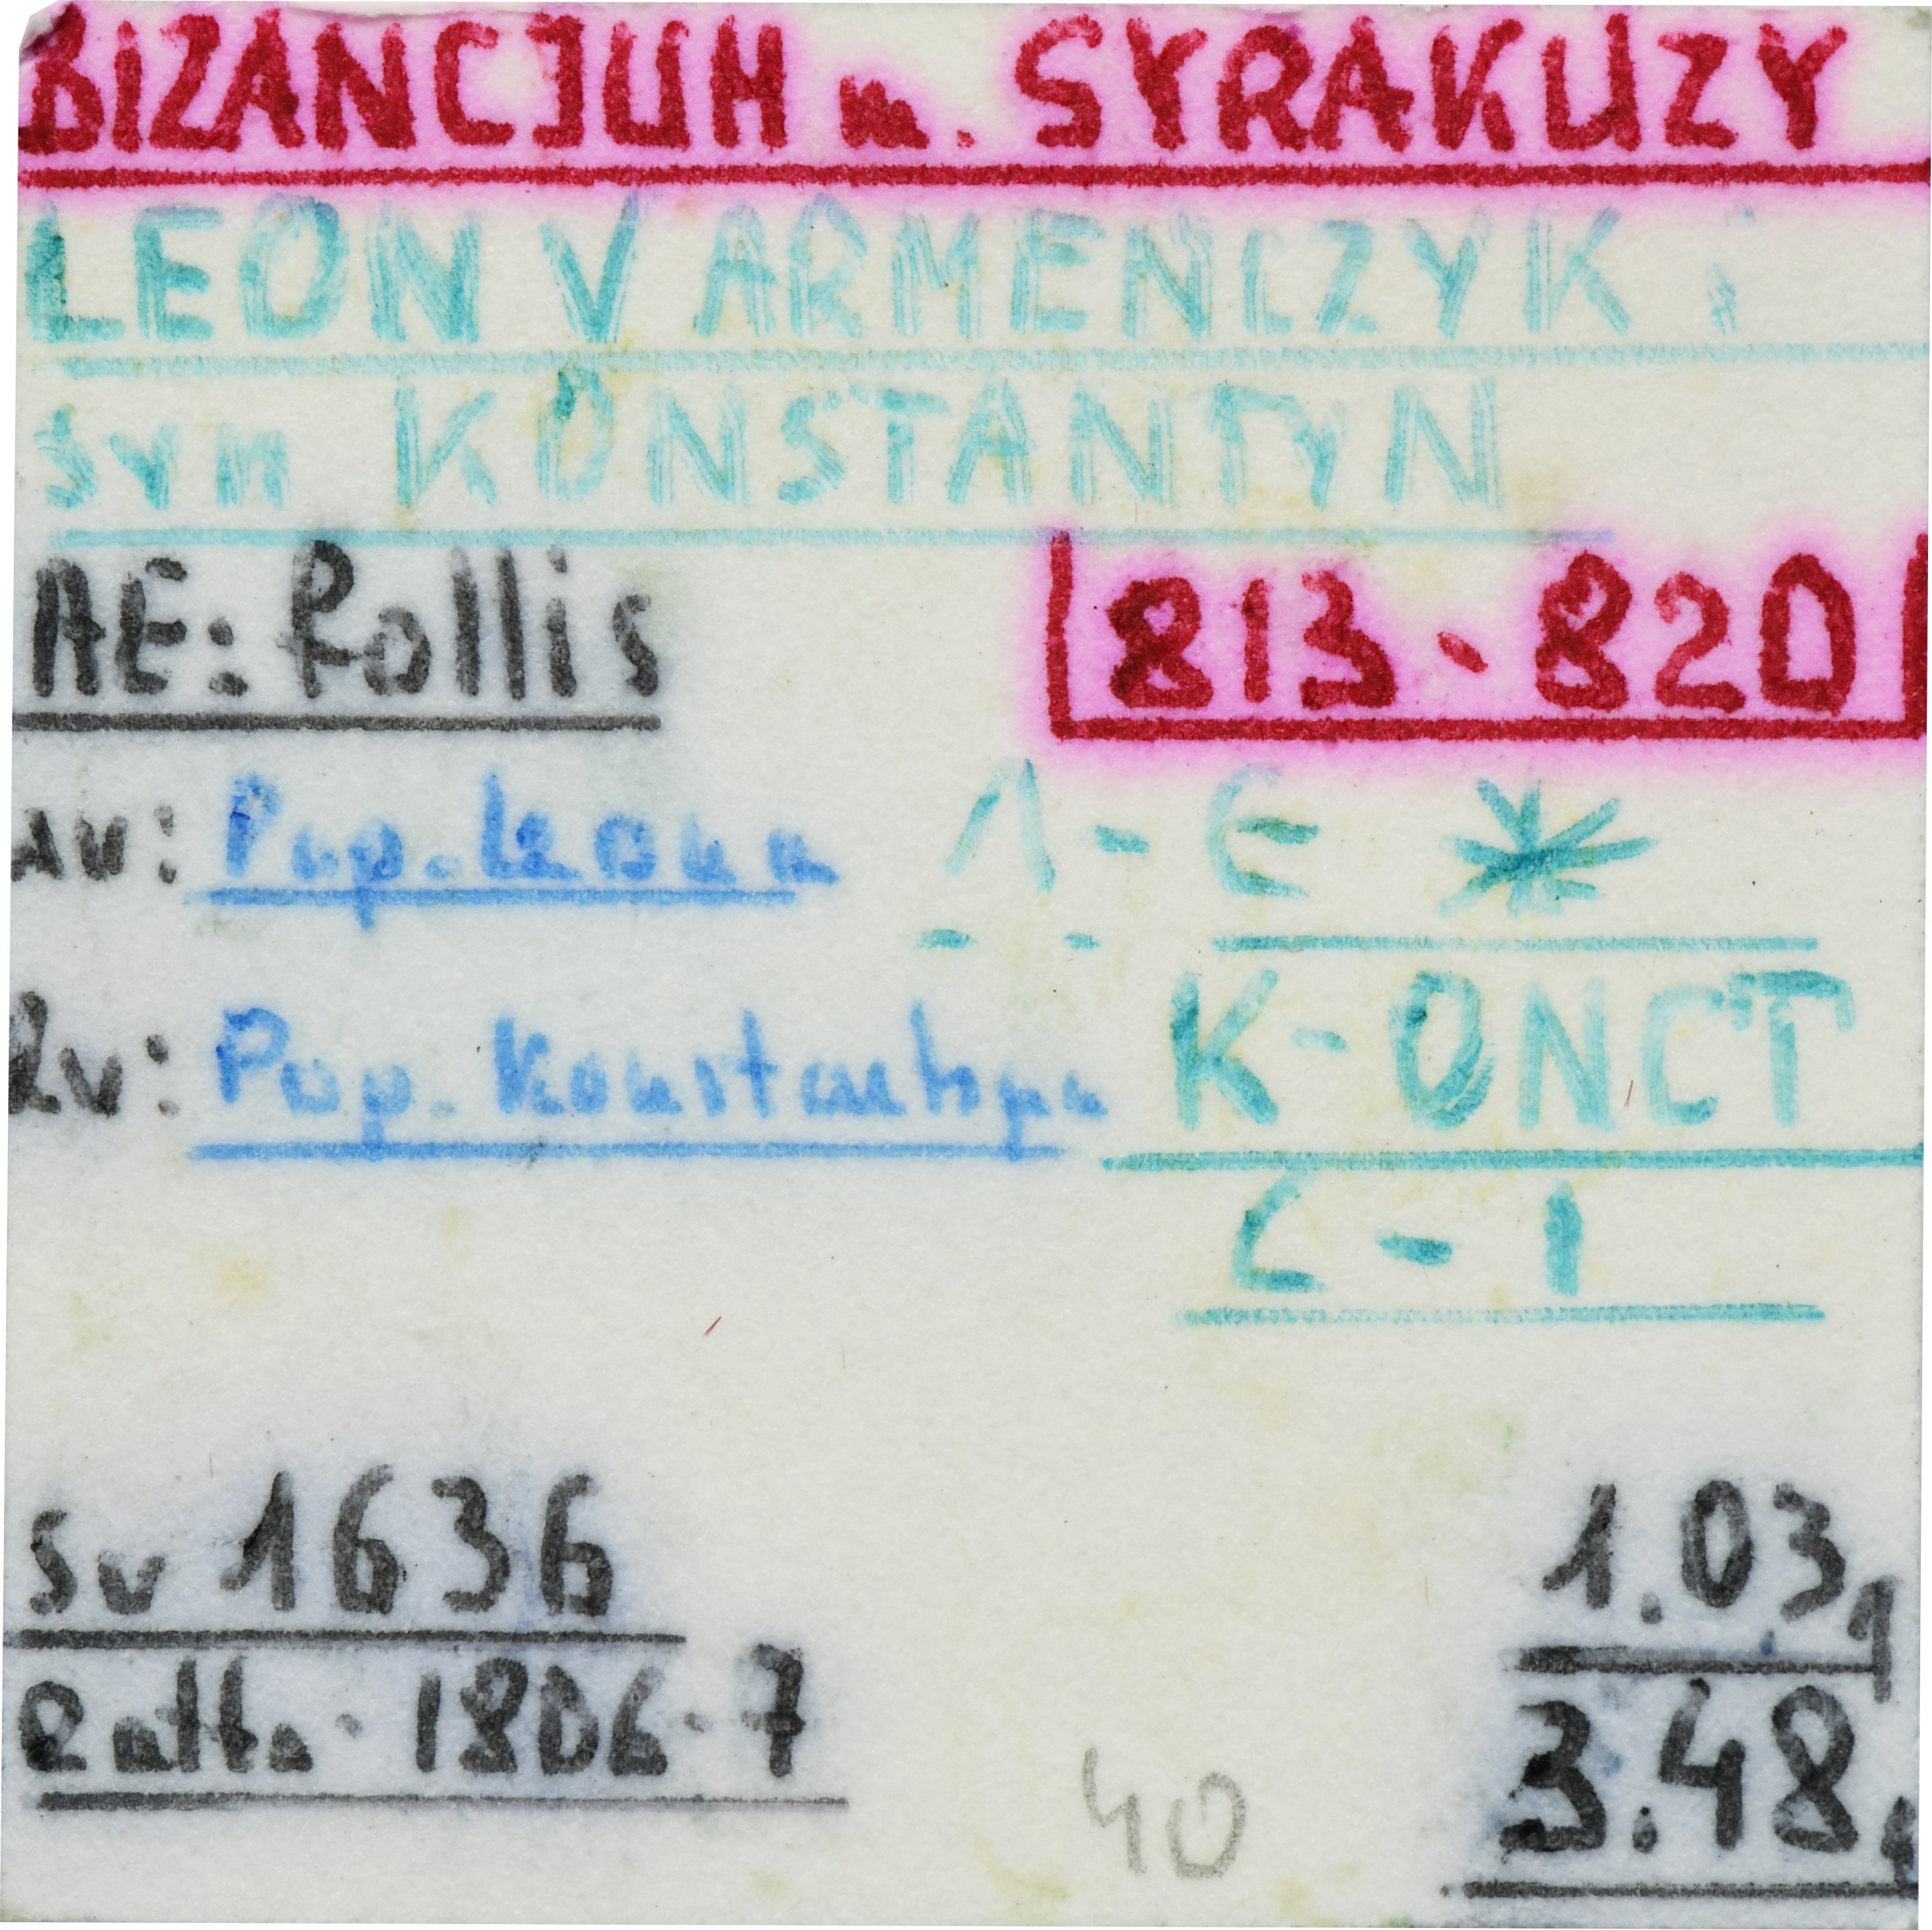 BIZANCJUM m. SYRAKUZY
LEON V ARMEŃCZYK i
syn KONSTANTYN
AE: Follis
813-820
Av: Pop. Leona Λ - Є *
Rv: Pop. Konstantyna K-ONCT
C - I
Sv 1636
Ratto. 1806-7
1.03,
40
3.48,